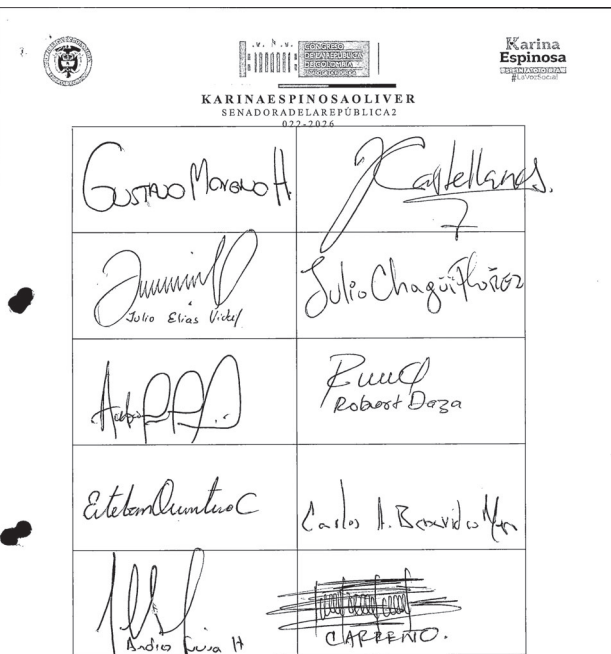 CONGRESO
DE LA REPÚBLICA
DE COLOMBIA
Karina
Espinosa
#LaVozSocial
KARINAESPINOSAOLIVER
SENADORADELAREPÚBLICA2
022-2026
GUSTAVO MORENO H.
JCastellanos.
7
Julio Elias Vidal
Julio Chagüi Flórez
Robert Daza
Esteban Quintero C
Carlos A. Benavides
Guerra H
CARREÑO.